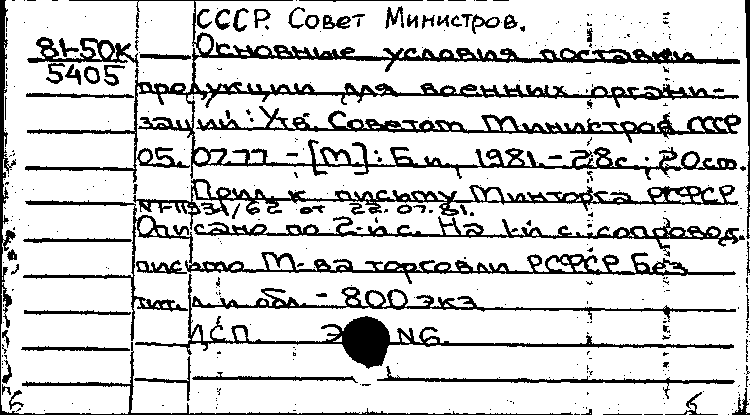 СССР. Совет Министров.
81-50К
5405
Основные условия поставки
продукции для военных органи-
заций: Утв. Советом Министров СССР
05.07.77 - [М]: Б.и., 1981. - 28с.; 20см.
Прил. к письму Минторга РСФСР
от 22.07.81.
Описано по 2-й с. На 1-й с. сопровод.
письмо М-ва торговли РСФСР. Без
тит. л. и обл. - 800 экз
ДСП. N6.